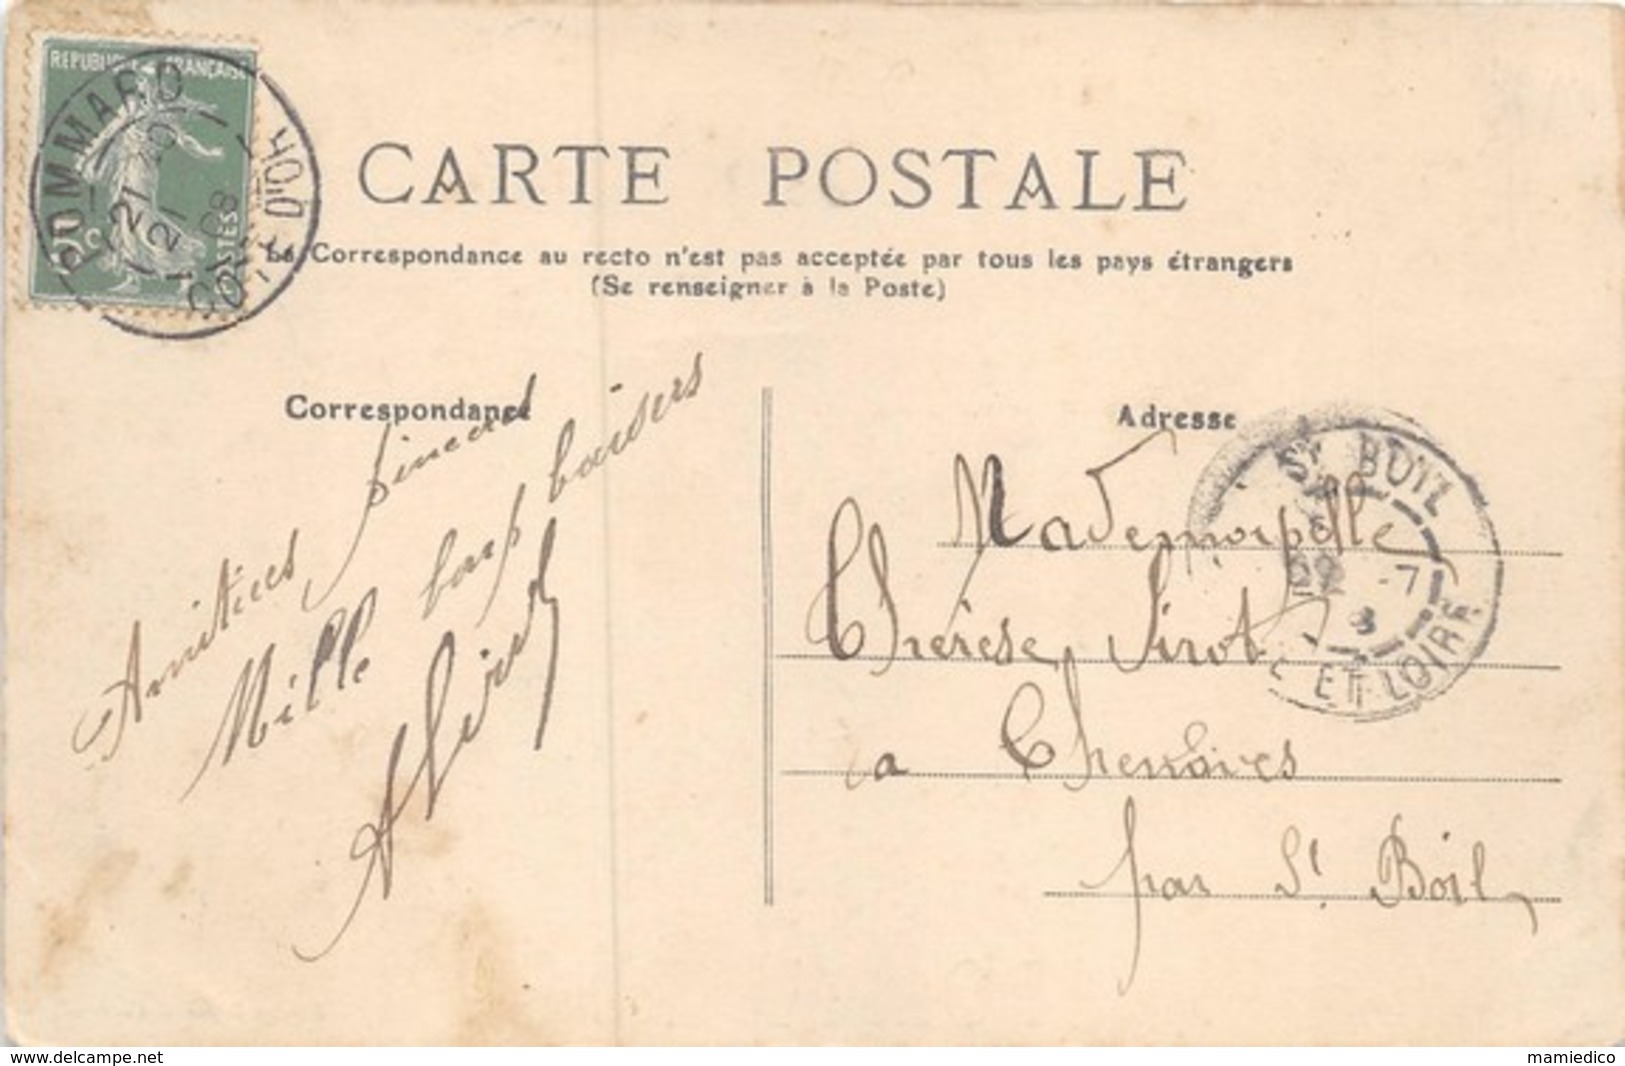 REPUBLIQUE FRANÇAISE
POSTES
POMMARD
21
21 - 1
08
COTE D'OR
CARTE POSTALE
La Correspondance au recto n'est pas acceptée par tous les pays étrangers
(Se renseigner à la Poste)
Correspondance
Amitiés sincères
Mille bons baisers
Adresse
Mademoiselle
Thérèse Sirot
a Chenoves
par St. Boil
ST BOIL
ET LOIRE
www.delcampe.net
mamiedico